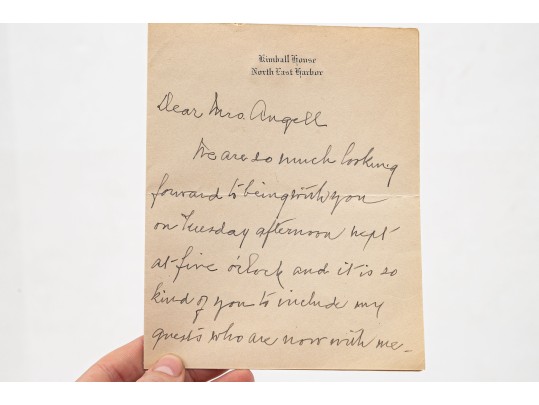 Kimball House
North East Harbor
Dear Mrs. Angell
We are so much looking
forward to being with you
on Tuesday afternoon next
at five o'clock and it is so
kind of you to include my
guests who are now with me -